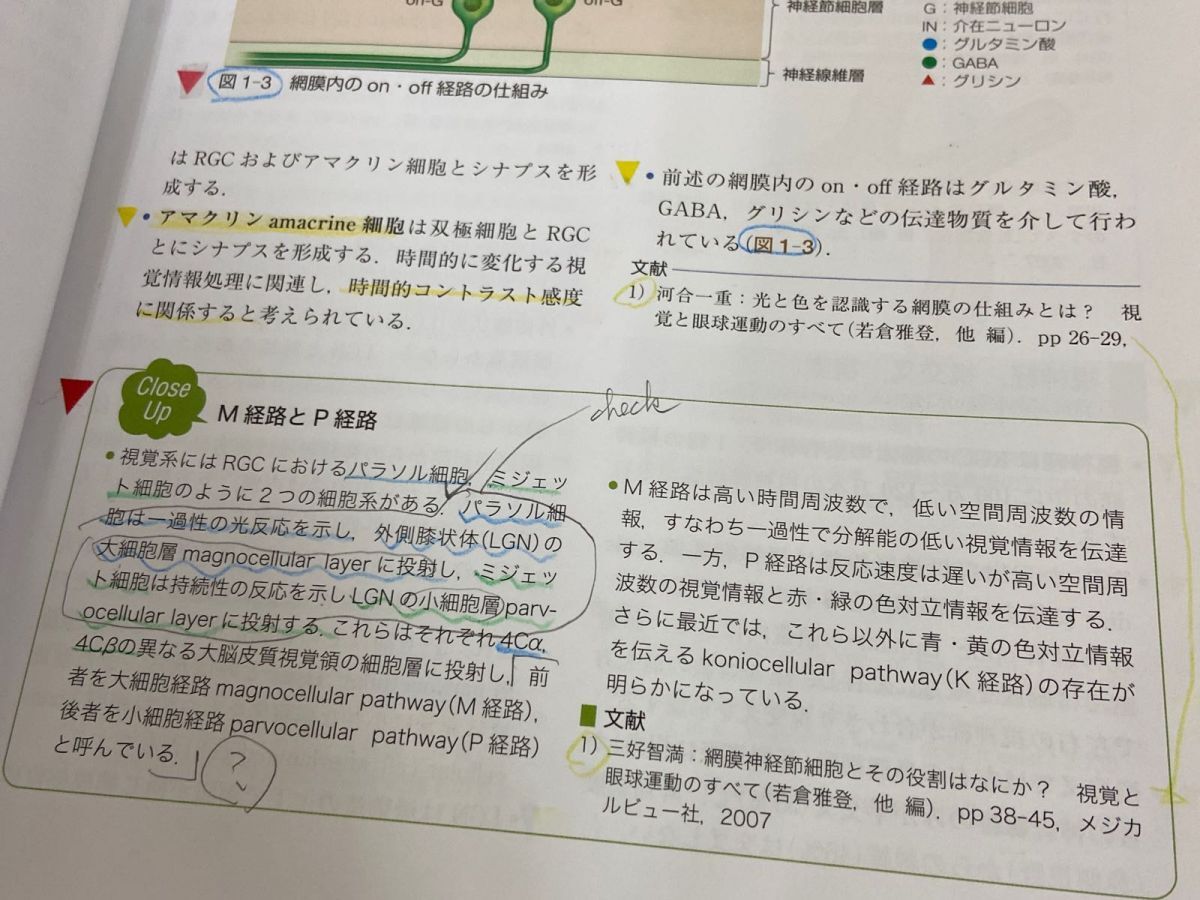 on-G
on-G
神経節細胞層
神経線維層
G：神経節細胞
IN：介在ニューロン
：グルタミン酸
：GABA
：グリシン
図1-3 網膜内のon・off経路の仕組み
はRGCおよびアマクリン細胞とシナプスを形
成する．
• アマクリンamacrine細胞は双極細胞とRGC
とにシナプスを形成する．時間的に変化する視
覚情報処理に関連し，時間的コントラスト感度
に関係すると考えられている．
• 前述の網膜内のon・off経路はグルタミン酸，
GABA，グリシンなどの伝達物質を介して行わ
れている(図1-3)．
文献
1) 河合一重：光と色を認識する網膜の仕組みとは？ 視
覚と眼球運動のすべて(若倉雅登，他 編)．pp 26-29，
Close
Up
M経路とP経路
check
• 視覚系にはRGCにおけるパラソル細胞，ミジェッ
ト細胞のように2つの細胞系がある．パラソル細
胞は一過性の光反応を示し，外側膝状体(LGN)の
大細胞層magnocellular layerに投射し，ミジェッ
ト細胞は持続性の反応を示しLGNの小細胞層parv-
ocellular layerに投射する．これらはそれぞれ4Cα，
4Cβの異なる大脳皮質視覚領の細胞層に投射し，前
者を大細胞経路magnocellular pathway(M経路)，
後者を小細胞経路parvocellular pathway(P経路)
と呼んでいる．
?
• M経路は高い時間周波数で，低い空間周波数の情
報，すなわち一過性で分解能の低い視覚情報を伝達
する．一方，P経路は反応速度は遅いが高い空間周
波数の視覚情報と赤・緑の色対立情報を伝達する．
さらに最近では，これら以外に青・黄の色対立情報
を伝えるkoniocellular pathway(K経路)の存在が
明らかになっている．
文献
1) 三好智満：網膜神経節細胞とその役割はなにか？ 視覚と
眼球運動のすべて(若倉雅登，他 編)．pp 38-45，メジカ
ルビュー社，2007